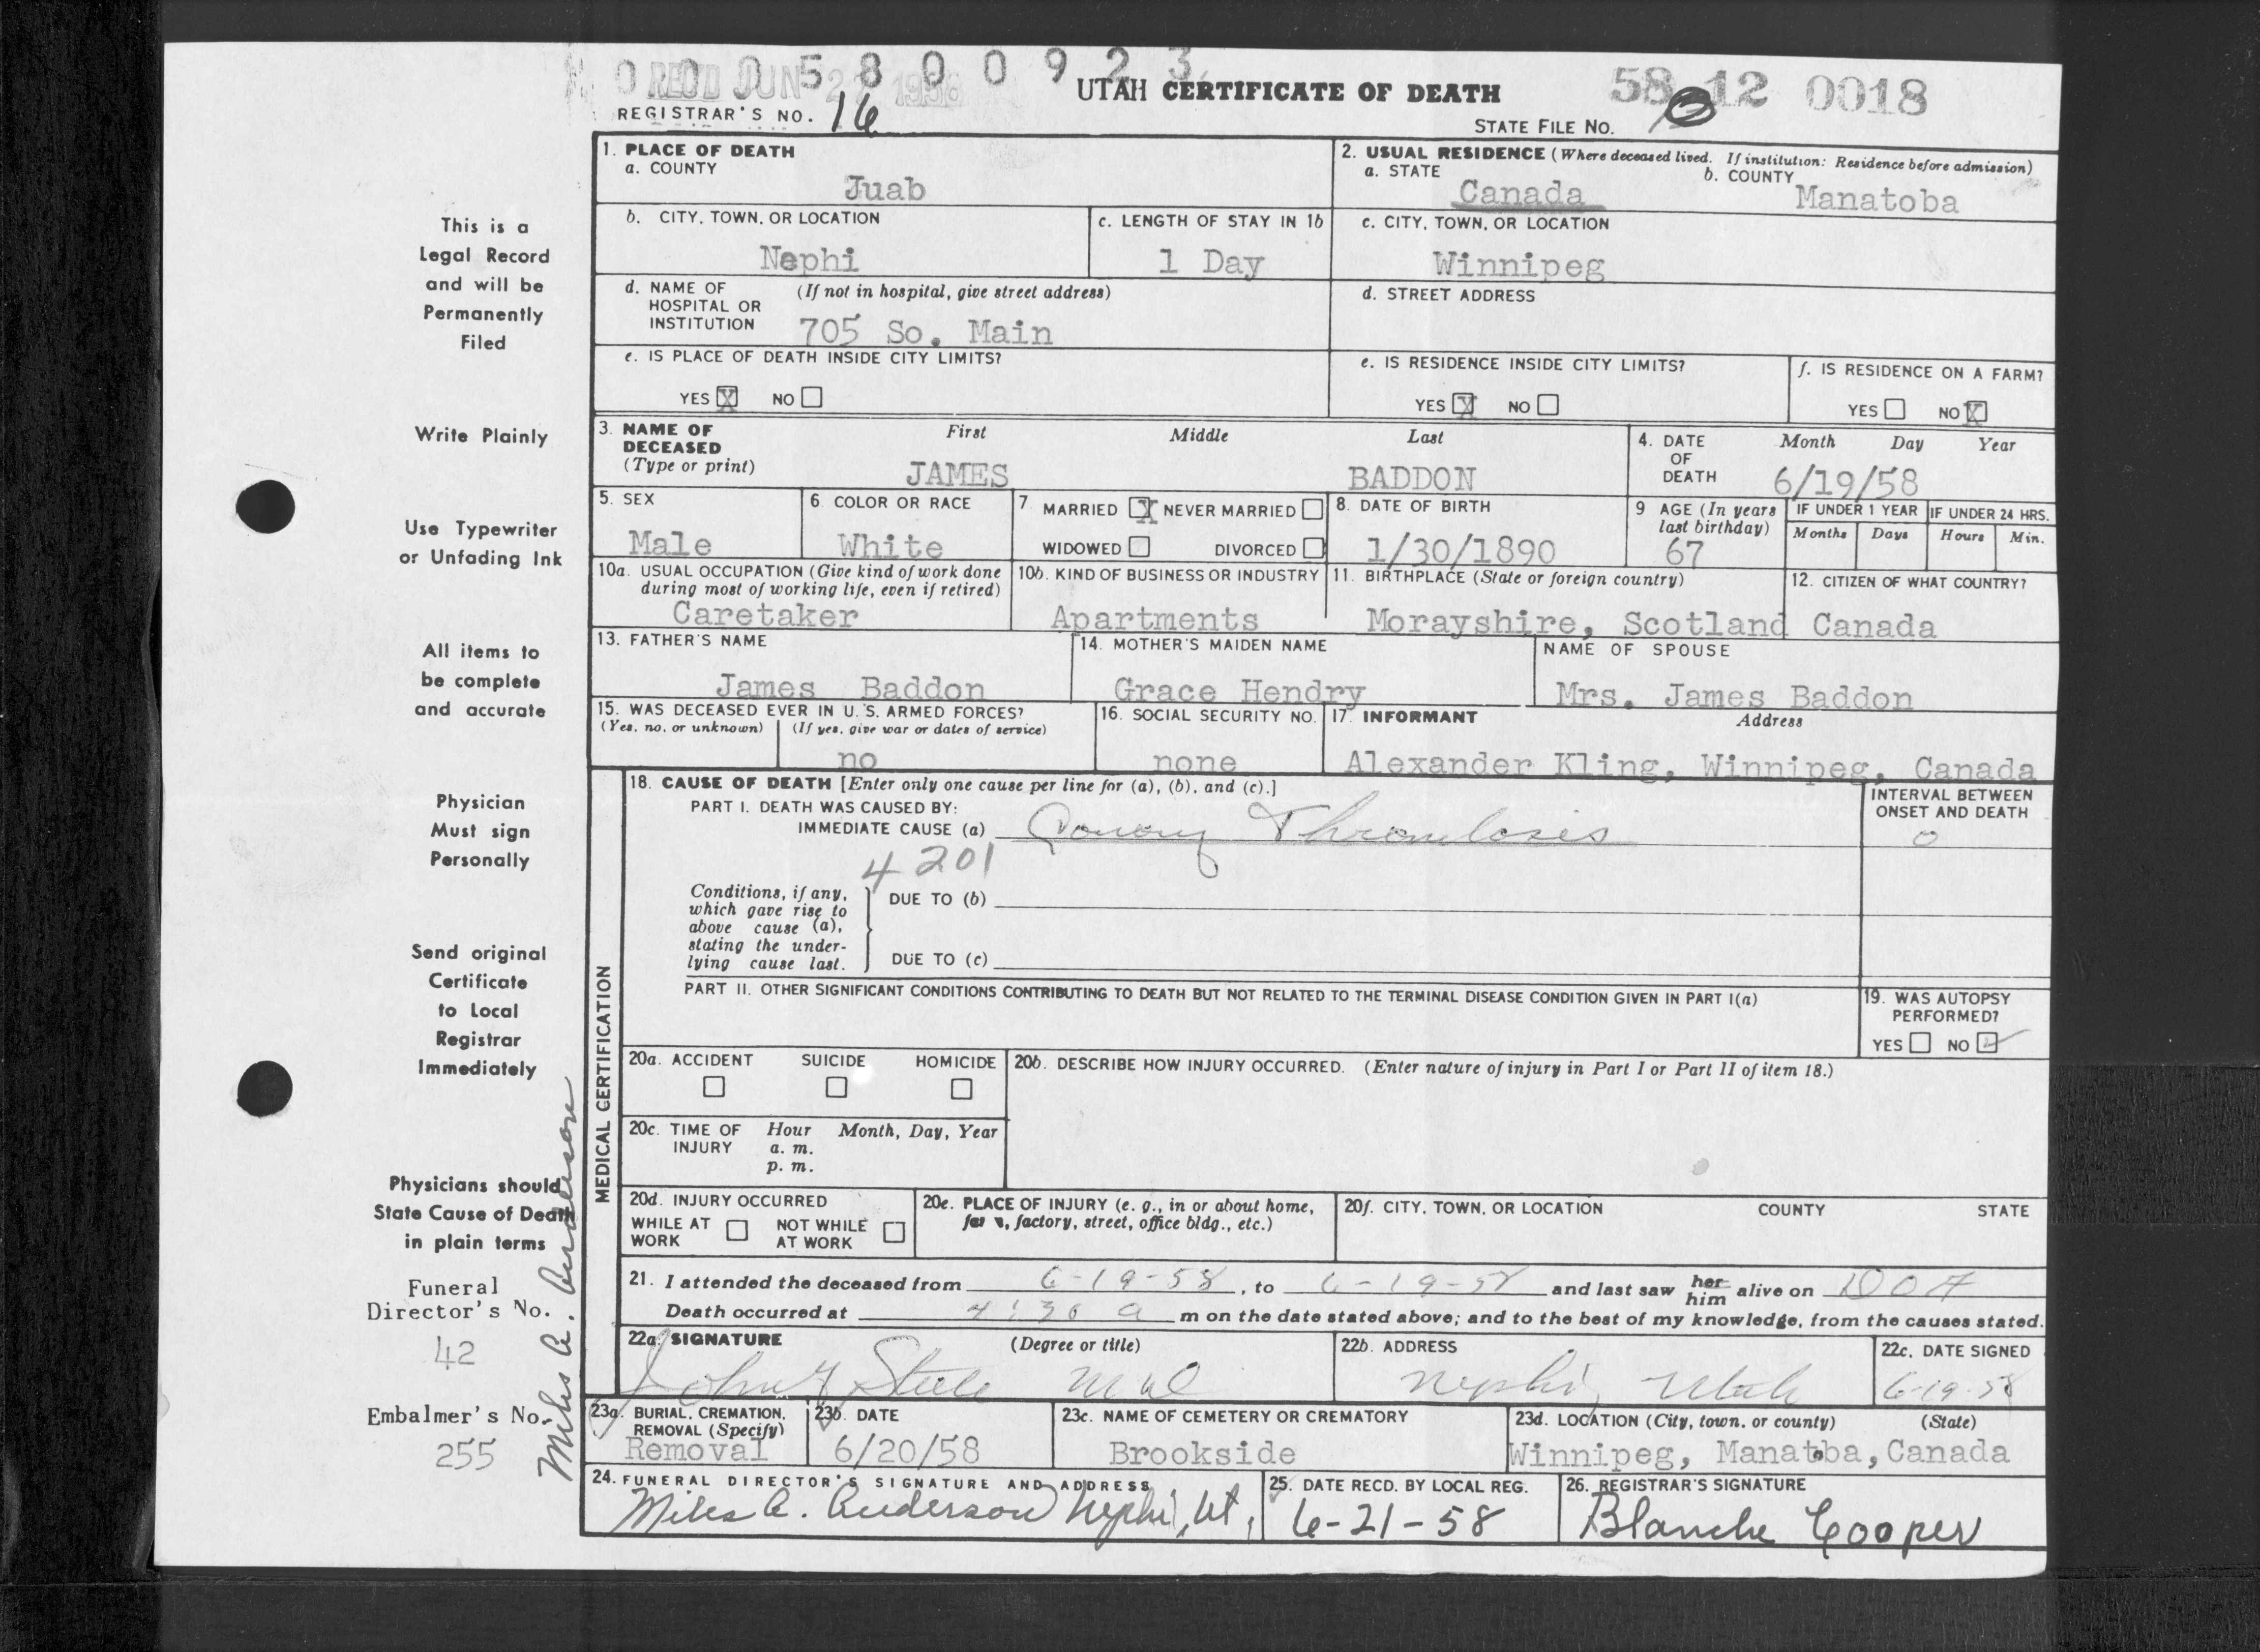 0 0 0 5 8 0 0 9 2 3
REC'D JUN 2 1958
UTAH CERTIFICATE OF DEATH
58 12 0018
REGISTRAR'S NO. 16
STATE FILE NO.
1. PLACE OF DEATH
a. COUNTY
Juab
2. USUAL RESIDENCE (Where deceased lived. If institution: Residence before admission)
a. STATE
Canada
b. COUNTY
Manatoba
b. CITY, TOWN, OR LOCATION
Nephi
c. LENGTH OF STAY IN 1b
1 Day
c. CITY, TOWN, OR LOCATION
Winnipeg
d. NAME OF HOSPITAL OR INSTITUTION
(If not in hospital, give street address)
705 So. Main
d. STREET ADDRESS
e. IS PLACE OF DEATH INSIDE CITY LIMITS?
YES X NO
e. IS RESIDENCE INSIDE CITY LIMITS?
YES X NO
f. IS RESIDENCE ON A FARM?
YES NO X
3. NAME OF DECEASED
(Type or print)
First Middle Last
JAMES BADDON
4. DATE OF DEATH
Month Day Year
6/19/58
5. SEX
Male
6. COLOR OR RACE
White
7 MARRIED X NEVER MARRIED
WIDOWED DIVORCED
8. DATE OF BIRTH
1/30/1890
9 AGE (In years last birthday)
67
IF UNDER 1 YEAR
Months Days
IF UNDER 24 HRS.
Hours Min.
10a. USUAL OCCUPATION (Give kind of work done
during most of working life, even if retired)
Caretaker
10b. KIND OF BUSINESS OR INDUSTRY
Apartments
11. BIRTHPLACE (State or foreign country)
Morayshire, Scotland
12. CITIZEN OF WHAT COUNTRY?
Canada
13. FATHER'S NAME
James Baddon
14. MOTHER'S MAIDEN NAME
Grace Hendry
NAME OF SPOUSE
Mrs. James Baddon
15. WAS DECEASED EVER IN U. S. ARMED FORCES?
(Yes, no, or unknown) (If yes, give war or dates of service)
no
16. SOCIAL SECURITY NO.
none
17. INFORMANT Address
Alexander Kling, Winnipeg, Canada
MEDICAL CERTIFICATION
18. CAUSE OF DEATH [Enter only one cause per line for (a), (b), and (c).]
PART I. DEATH WAS CAUSED BY:
IMMEDIATE CAUSE (a) Coronary Thrombosis
4201
INTERVAL BETWEEN
ONSET AND DEATH
0
Conditions, if any,
which gave rise to
above cause (a),
stating the under-
lying cause last.
DUE TO (b)
DUE TO (c)
PART II. OTHER SIGNIFICANT CONDITIONS CONTRIBUTING TO DEATH BUT NOT RELATED TO THE TERMINAL DISEASE CONDITION GIVEN IN PART I(a)
19. WAS AUTOPSY
PERFORMED?
YES NO ✓
20a. ACCIDENT SUICIDE HOMICIDE
20b. DESCRIBE HOW INJURY OCCURRED. (Enter nature of injury in Part I or Part II of item 18.)
20c. TIME OF INJURY
Hour Month, Day, Year
a. m.
p. m.
20d. INJURY OCCURRED
WHILE AT WORK NOT WHILE AT WORK
20e. PLACE OF INJURY (e. g., in or about home,
factory, street, office bldg., etc.)
20f. CITY, TOWN, OR LOCATION COUNTY STATE
21. I attended the deceased from 6-19-58, to 6-19-58 and last saw her him alive on DOA
Death occurred at 4:30 a m on the date stated above; and to the best of my knowledge, from the causes stated.
22a. SIGNATURE (Degree or title)
John Steele MD
22b. ADDRESS
Nephi, Utah
22c. DATE SIGNED
6-19-58
23a. BURIAL, CREMATION,
REMOVAL (Specify)
Removal
23b. DATE
6/20/58
23c. NAME OF CEMETERY OR CREMATORY
Brookside
23d. LOCATION (City, town, or county) (State)
Winnipeg, Manatoba, Canada
24. FUNERAL DIRECTOR'S SIGNATURE AND ADDRESS
Miles A. Anderson Nephi, Ut.
25. DATE RECD. BY LOCAL REG.
6-21-58
26. REGISTRAR'S SIGNATURE
Blanche Cooper
This is a
Legal Record
and will be
Permanently
Filed
Write Plainly
Use Typewriter
or Unfading Ink
All items to
be complete
and accurate
Physician
Must sign
Personally
Send original
Certificate
to Local
Registrar
Immediately
Physicians should
State Cause of Death
in plain terms
Funeral
Director's No.
42
Embalmer's No.
255
Miles A. Anderson